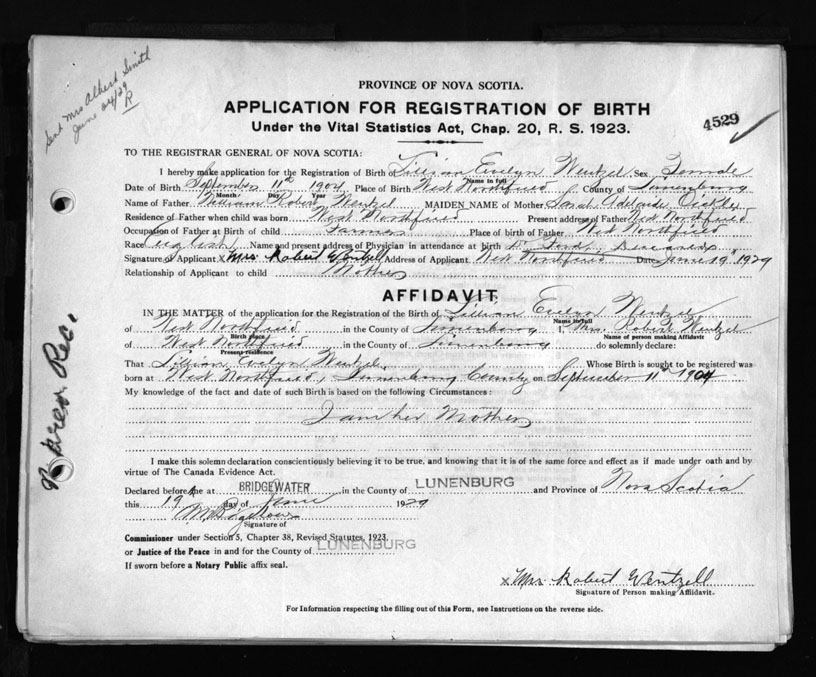 Sent Mrs Albert Smith
June 24/29
R
PROVINCE OF NOVA SCOTIA.
APPLICATION FOR REGISTRATION OF BIRTH
4529
Under the Vital Statistics Act, Chap. 20, R. S. 1923.
TO THE REGISTRAR GENERAL OF NOVA SCOTIA:
I hereby make application for the Registration of Birth of Lillian Evelyn Wentzel Sex Female
Name in full
Date of Birth September 11th 1904 Place of Birth West Northfield County of Lunenburg
Month Day Year
Name of Father William Robert Wentzel MAIDEN NAME of Mother Sarah Adelaide
Residence of Father when child was born West Northfield Present address of Father West Northfield
Occupation of Father at Birth of child Farmer Place of birth of Father West Northfield
Race English Name and present address of Physician in attendance at birth Dr. Ford, Deceased
Signature of Applicant x Mrs. Robert Wentzell Address of Applicant West Northfield Date June 19th 1929
Relationship of Applicant to child Mother
AFFIDAVIT
IN THE MATTER of the application for the Registration of the Birth of Lillian Evelyn Wentzel
Name in full
of West Northfield in the County of Lunenburg I, Mrs. Robert Wentzel
Birth place Name of person making affidavit
of West Northfield in the County of Lunenburg do solemnly declare:
Present residence
That Lillian Evelyn Wentzel Whose Birth is sought to be registered was
born at West Northfield, Lunenburg County on September 11th 1904
My knowledge of the fact and date of such Birth is based on the following Circumstances:
I am her Mother
I make this solemn declaration conscientiously believing it to be true, and knowing that it is of the same force and effect as if made under oath and by
virtue of The Canada Evidence Act.
Declared before me at BRIDGEWATER in the County of LUNENBURG and Province of Nova Scotia
this 19 day of June 1929
Signature of
Commissioner under Section 5, Chapter 38, Revised Statutes, 1923.
or Justice of the Peace in and for the County of LUNENBURG
If sworn before a Notary Public affix seal.
x Mrs Robert Wentzell
Signature of Person making Affidavit.
For Information respecting the filling out of this Form, see Instructions on the reverse side.